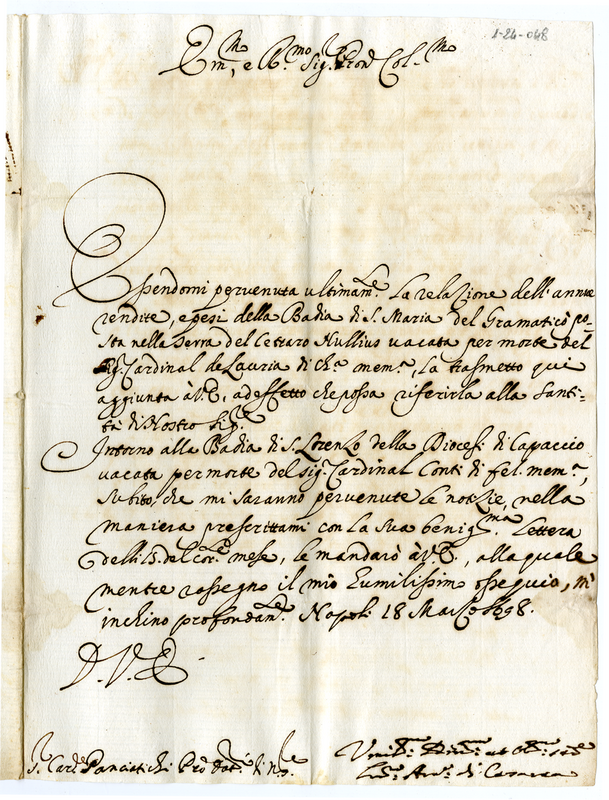 1-24-048
Em.mo, e R.mo Sig.r Pron Col.mo
Essendomi pervenuta ultimam.te la relazione dell'annue
rendite, e pesi della Badia di S. Maria del Gramatico po=
sta nella Terra del Cetraro Nullius vacata per morte del
Sig. Cardinal de Lauria di ch. mem.a, la trasmetto qui
aggiunta à V.E., ad effetto che possa riferirla alla Santi=
tà di Nostro Sig.re
Intorno alla Badia di S. Lorenzo della Diocesi di Capaccio
vacata per morte del Sig. Cardinal Conti di fel. mem.a,
subito, che mi saranno pervenute le notizie, nella
maniera prescrittami con la sua benig.ma Lettera
delli 15. del cor.te mese, le mandarò à V.E., alla quale
mentre rassegno il mio humilissim ossequio, m'
inchino profondam.te. Napoli 18 Marzo 1698.
D. V. E.
S. Card. Panciatichi Pro Dat. di N.S.
Umil. Divot. et Obl. Ser.
di Caserta